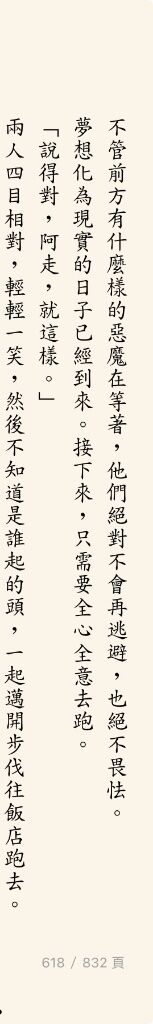 不管前方有什麼樣的惡魔在等著，他們絕對不會再逃避，也絕不畏怯。
夢想化為現實的日子已經到來。接下來，只需要全心全意去跑。
「說得對，阿走，就這樣。」
兩人四目相對，輕輕一笑，然後不知道是誰起的頭，一起邁開步伐往飯店跑去。
618 / 832 頁